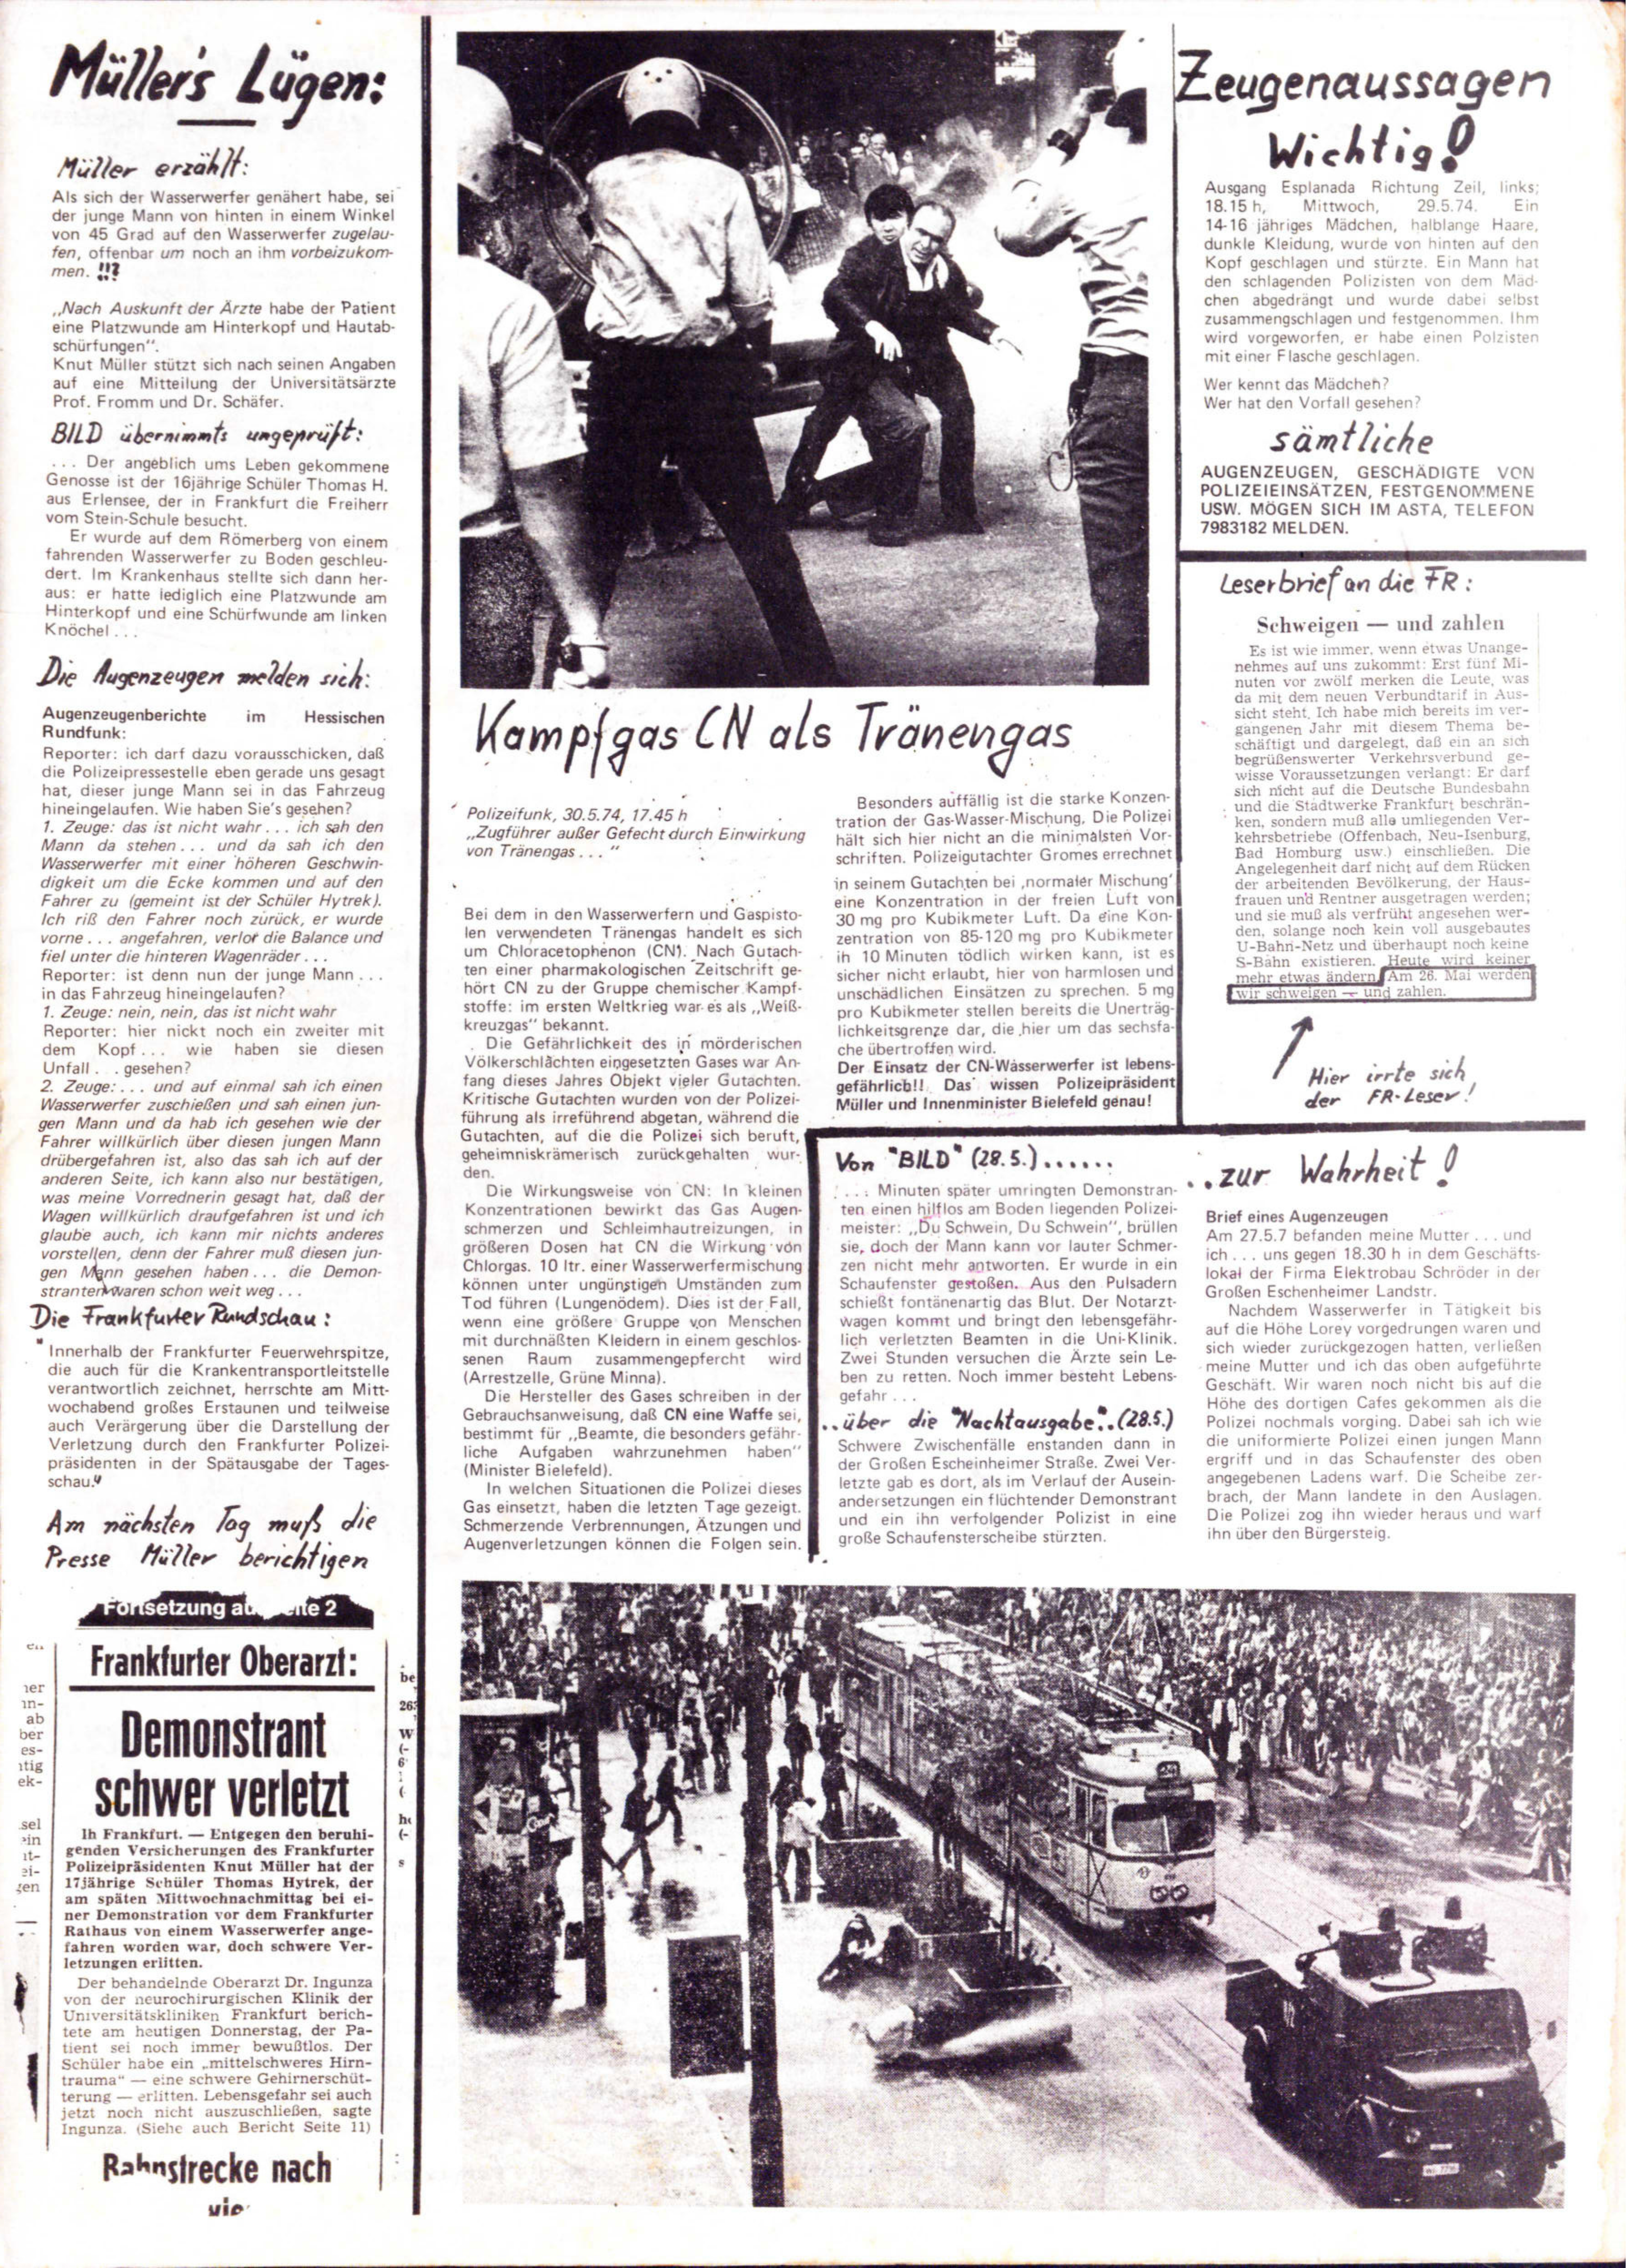 Müller's Lügen:
Müller erzählt:
Als sich der Wasserwerfer genähert habe, sei
der junge Mann von hinten in einem Winkel
von 45 Grad auf den Wasserwerfer zugelau-
fen, offenbar um noch an ihm vorbeizukom-
men. !!?
„Nach Auskunft der Ärzte habe der Patient
eine Platzwunde am Hinterkopf und Hautab-
schürfungen“.
Knut Müller stützt sich nach seinen Angaben
auf eine Mitteilung der Universitätsärzte
Prof. Fromm und Dr. Schäfer.
BILD übernimmts ungeprüft:
... Der angeblich ums Leben gekommene
Genosse ist der 16jährige Schüler Thomas H.
aus Erlensee, der in Frankfurt die Freiherr
vom Stein-Schule besucht.
Er wurde auf dem Römerberg von einem
fahrenden Wasserwerfer zu Boden geschleu-
dert. Im Krankenhaus stellte sich dann her-
aus: er hatte lediglich eine Platzwunde am
Hinterkopf und eine Schürfwunde am linken
Knöchel ...
Die Augenzeugen melden sich:
Augenzeugenberichte im Hessischen
Rundfunk:
Reporter: ich darf dazu vorausschicken, daß
die Polizeipressestelle eben gerade uns gesagt
hat, dieser junge Mann sei in das Fahrzeug
hineingelaufen. Wie haben Sie's gesehen?
1. Zeuge: das ist nicht wahr ... ich sah den
Mann da stehen ... und da sah ich den
Wasserwerfer mit einer höheren Geschwin-
digkeit um die Ecke kommen und auf den
Fahrer zu (gemeint ist der Schüler Hytrek).
Ich riß den Fahrer noch zurück, er wurde
vorne ... angefahren, verlor die Balance und
fiel unter die hinteren Wagenräder ...
Reporter: ist denn nun der junge Mann ...
in das Fahrzeug hineingelaufen?
1. Zeuge: nein, nein, das ist nicht wahr
Reporter: hier nickt noch ein zweiter mit
dem Kopf ... wie haben sie diesen
Unfall ... gesehen?
2. Zeuge: ... und auf einmal sah ich einen
Wasserwerfer zuschießen und sah einen jun-
gen Mann und da hab ich gesehen wie der
Fahrer willkürlich über diesen jungen Mann
drübergefahren ist, also das sah ich auf der
anderen Seite, ich kann also nur bestätigen,
was meine Vorrednerin gesagt hat, daß der
Wagen willkürlich draufgefahren ist und ich
glaube auch, ich kann mir nichts anderes
vorstellen, denn der Fahrer muß diesen jun-
gen Mann gesehen haben ... die Demon-
stranten waren schon weit weg ...
Die Frankfurter Rundschau:
" Innerhalb der Frankfurter Feuerwehrspitze,
die auch für die Krankentransportleitstelle
verantwortlich zeichnet, herrschte am Mitt-
wochabend großes Erstaunen und teilweise
auch Verärgerung über die Darstellung der
Verletzung durch den Frankfurter Polizei-
präsidenten in der Spätausgabe der Tages-
schau."
Am nächsten Tag muß die
Presse Müller berichtigen
Fortsetzung auf Seite 2
Frankfurter Oberarzt:
Demonstrant
schwer verletzt
lh Frankfurt. — Entgegen den beruhi-
genden Versicherungen des Frankfurter
Polizeipräsidenten Knut Müller hat der
17jährige Schüler Thomas Hytrek, der
am späten Mittwochnachmittag bei ei-
ner Demonstration vor dem Frankfurter
Rathaus von einem Wasserwerfer ange-
fahren worden war, doch schwere Ver-
letzungen erlitten.
Der behandelnde Oberarzt Dr. Ingunza
von der neurochirurgischen Klinik der
Universitätskliniken Frankfurt berich-
tete am heutigen Donnerstag, der Pa-
tient sei noch immer bewußtlos. Der
Schüler habe ein „mittelschweres Hirn-
trauma“ — eine schwere Gehirnerschüt-
terung — erlitten. Lebensgefahr sei auch
jetzt noch nicht auszuschließen, sagte
Ingunza. (Siehe auch Bericht Seite 11)
Bahnstrecke nach
Kampfgas CN als Tränengas
Polizeifunk, 30.5.74, 17.45 h
„Zugführer außer Gefecht durch Einwirkung
von Tränengas ... "
Bei dem in den Wasserwerfern und Gaspisto-
len verwendeten Tränengas handelt es sich
um Chloracetophenon (CN). Nach Gutach-
ten einer pharmakologischen Zeitschrift ge-
hört CN zu der Gruppe chemischer Kampf-
stoffe: im ersten Weltkrieg war es als „Weiß-
kreuzgas“ bekannt.
Die Gefährlichkeit des in mörderischen
Völkerschlächten eingesetzten Gases war An-
fang dieses Jahres Objekt vieler Gutachten.
Kritische Gutachten wurden von der Polizei-
führung als irreführend abgetan, während die
Gutachten, auf die die Polizei sich beruft,
geheimniskrämerisch zurückgehalten wur-
den.
Die Wirkungsweise von CN: In kleinen
Konzentrationen bewirkt das Gas Augen-
schmerzen und Schleimhautreizungen, in
größeren Dosen hat CN die Wirkung von
Chlorgas. 10 ltr. einer Wasserwerfermischung
können unter ungünstigen Umständen zum
Tod führen (Lungenödem). Dies ist der Fall,
wenn eine größere Gruppe von Menschen
mit durchnäßten Kleidern in einem geschlos-
senen Raum zusammengepfercht wird
(Arrestzelle, Grüne Minna).
Die Hersteller des Gases schreiben in der
Gebrauchsanweisung, daß CN eine Waffe sei,
bestimmt für „Beamte, die besonders gefähr-
liche Aufgaben wahrzunehmen haben“
(Minister Bielefeld).
In welchen Situationen die Polizei dieses
Gas einsetzt, haben die letzten Tage gezeigt.
Schmerzende Verbrennungen, Ätzungen und
Augenverletzungen können die Folgen sein.
Besonders auffällig ist die starke Konzen-
tration der Gas-Wasser-Mischung. Die Polizei
hält sich hier nicht an die minimalsten Vor-
schriften. Polizeigutachter Gromes errechnet
in seinem Gutachten bei ‚normaler Mischung'
eine Konzentration in der freien Luft von
30 mg pro Kubikmeter Luft. Da eine Kon-
zentration von 85-120 mg pro Kubikmeter
in 10 Minuten tödlich wirken kann, ist es
sicher nicht erlaubt, hier von harmlosen und
unschädlichen Einsätzen zu sprechen. 5 mg
pro Kubikmeter stellen bereits die Unerträg-
lichkeitsgrenze dar, die hier um das sechsfa-
che übertroffen wird.
Der Einsatz der CN-Wasserwerfer ist lebens-
gefährlich!! Das wissen Polizeipräsident
Müller und Innenminister Bielefeld genau!
Zeugenaussagen
Wichtig!
Ausgang Esplanada Richtung Zeil, links;
18.15 h, Mittwoch, 29.5.74. Ein
14-16 jähriges Mädchen, halblange Haare,
dunkle Kleidung, wurde von hinten auf den
Kopf geschlagen und stürzte. Ein Mann hat
den schlagenden Polizisten von dem Mäd-
chen abgedrängt und wurde dabei selbst
zusammengschlagen und festgenommen. Ihm
wird vorgeworfen, er habe einen Polzisten
mit einer Flasche geschlagen.
Wer kennt das Mädchen?
Wer hat den Vorfall gesehen?
sämtliche
AUGENZEUGEN, GESCHÄDIGTE VON
POLIZEIEINSÄTZEN, FESTGENOMMENE
USW. MÖGEN SICH IM ASTA, TELEFON
7983182 MELDEN.
Leserbrief an die FR:
Schweigen — und zahlen
Es ist wie immer, wenn etwas Unange-
nehmes auf uns zukommt: Erst fünf Mi-
nuten vor zwölf merken die Leute, was
da mit dem neuen Verbundtarif in Aus-
sicht steht. Ich habe mich bereits im ver-
gangenen Jahr mit diesem Thema be-
schäftigt und dargelegt, daß ein an sich
begrüßenswerter Verkehrsverbund ge-
wisse Voraussetzungen verlangt: Er darf
sich nicht auf die Deutsche Bundesbahn
und die Stadtwerke Frankfurt beschrän-
ken, sondern muß alle umliegenden Ver-
kehrsbetriebe (Offenbach, Neu-Isenburg,
Bad Homburg usw.) einschließen. Die
Angelegenheit darf nicht auf dem Rücken
der arbeitenden Bevölkerung, der Haus-
frauen und Rentner ausgetragen werden;
und sie muß als verfrüht angesehen wer-
den, solange noch kein voll ausgebautes
U-Bahn-Netz und überhaupt noch keine
S-Bahn existieren. Heute wird keiner
mehr etwas ändern. Am 26. Mai werden
wir schweigen — und zahlen.
Hier irrte sich
der FR-Leser!
Von "BILD" (28.5.) ......
.... Minuten später umringten Demonstran-
ten einen hilflos am Boden liegenden Polizei-
meister: „Du Schwein, Du Schwein“, brüllen
sie, doch der Mann kann vor lauter Schmer-
zen nicht mehr antworten. Er wurde in ein
Schaufenster gestoßen. Aus den Pulsadern
schießt fontänenartig das Blut. Der Notarzt-
wagen kommt und bringt den lebensgefähr-
lich verletzten Beamten in die Uni-Klinik.
Zwei Stunden versuchen die Ärzte sein Le-
ben zu retten. Noch immer besteht Lebens-
gefahr ...
..über die "Nachtausgabe"..(28.5.)
Schwere Zwischenfälle enstanden dann in
der Großen Escheinheimer Straße. Zwei Ver-
letzte gab es dort, als im Verlauf der Ausein-
andersetzungen ein flüchtender Demonstrant
und ein ihn verfolgender Polizist in eine
große Schaufensterscheibe stürzten.
..zur Wahrheit!
Brief eines Augenzeugen
Am 27.5.7 befanden meine Mutter ... und
ich ... uns gegen 18.30 h in dem Geschäfts-
lokal der Firma Elektrobau Schröder in der
Großen Eschenheimer Landstr.
Nachdem Wasserwerfer in Tätigkeit bis
auf die Höhe Lorey vorgedrungen waren und
sich wieder zurückgezogen hatten, verließen
meine Mutter und ich das oben aufgeführte
Geschäft. Wir waren noch nicht bis auf die
Höhe des dortigen Cafes gekommen als die
Polizei nochmals vorging. Dabei sah ich wie
die uniformierte Polizei einen jungen Mann
ergriff und in das Schaufenster des oben
angegebenen Ladens warf. Die Scheibe zer-
brach, der Mann landete in den Auslagen.
Die Polizei zog ihn wieder heraus und warf
ihn über den Bürgersteig.